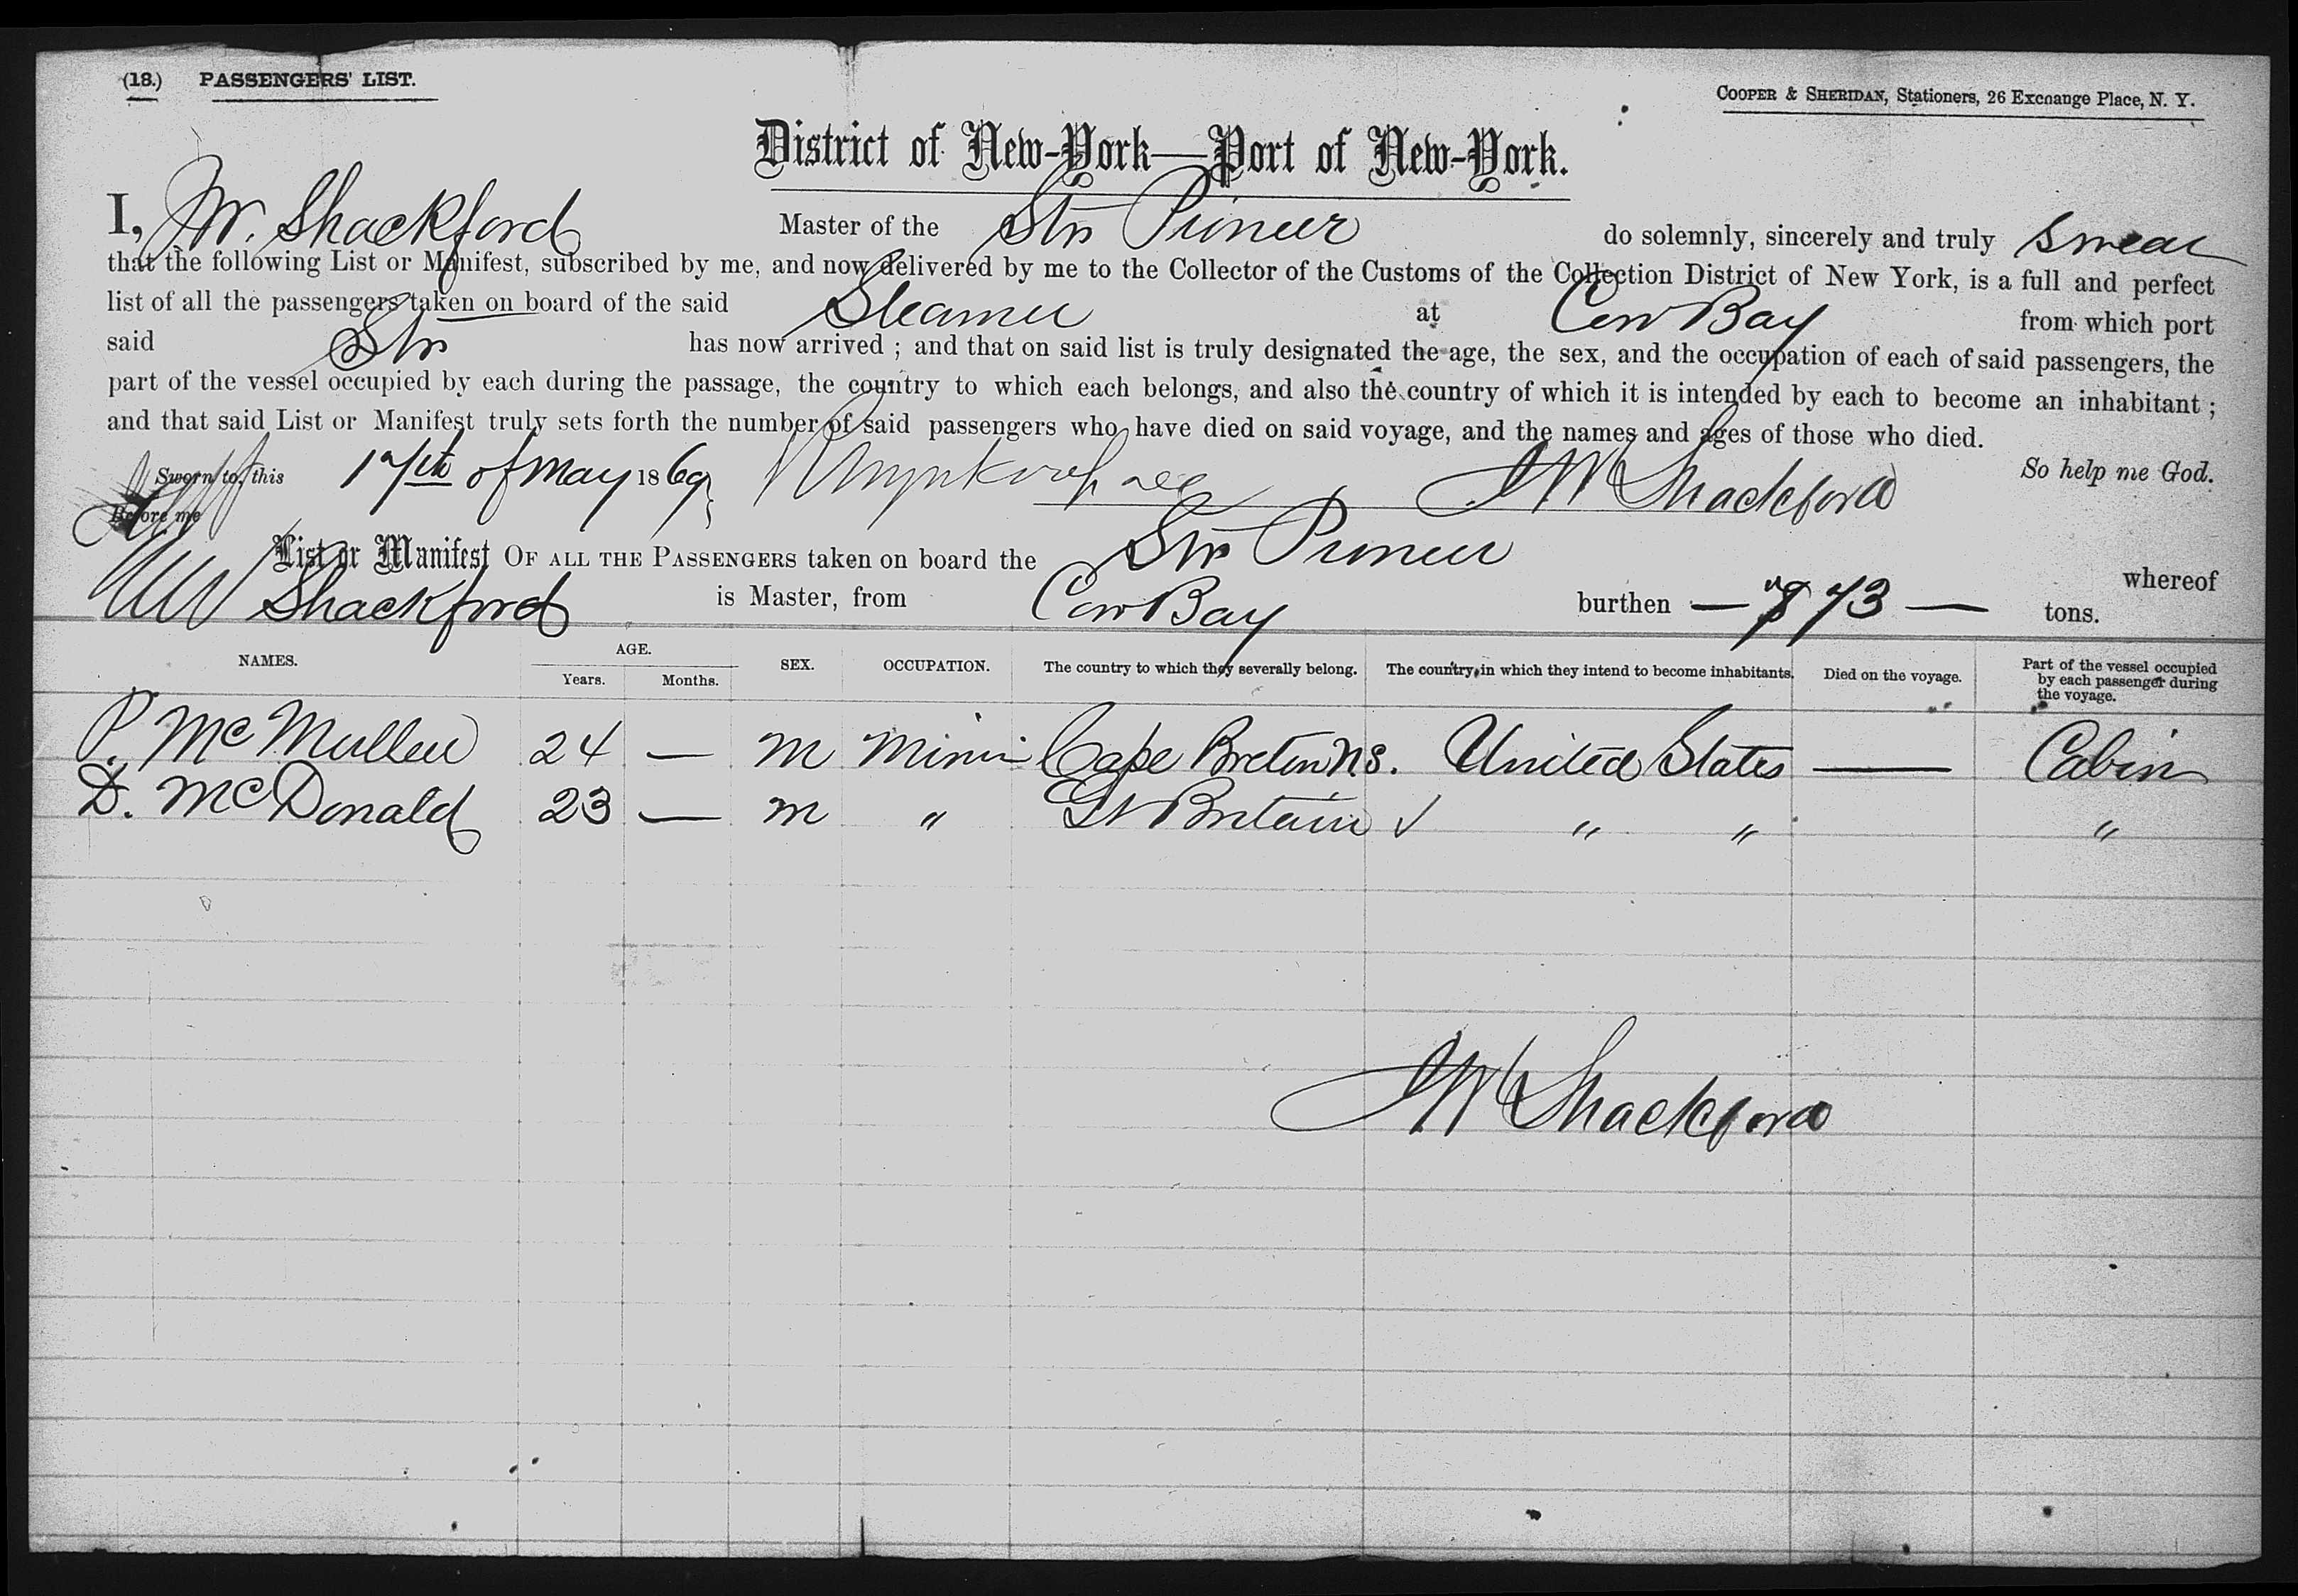 (18.) PASSENGERS' LIST.
COOPER & SHERIDAN, Stationers, 26 Exchange Place, N. Y.
District of New-York—Port of New-York.
I, J.W. Shackford Master of the Str Pioneer do solemnly, sincerely and truly swear
that the following List or Manifest, subscribed by me, and now delivered by me to the Collector of the Customs of the Collection District of New York, is a full and perfect
list of all the passengers taken on board of the said Steamer at Cow Bay from which port
said Str has now arrived ; and that on said list is truly designated the age, the sex, and the occupation of each of said passengers, the
part of the vessel occupied by each during the passage, the country to which each belongs, and also the country of which it is intended by each to become an inhabitant ;
and that said List or Manifest truly sets forth the number of said passengers who have died on said voyage, and the names and ages of those who died.
Sworn to, this 17th of May 1869 JW Shackford So help me God.
Before me
List or Manifest OF ALL THE PASSENGERS taken on board the Str Pioneer whereof
JW Shackford is Master, from Cow Bay burthen — 773 — tons.
NAMES. AGE. Years. Months. SEX. OCCUPATION. The country to which they severally belong. The country in which they intend to become inhabitants. Died on the voyage. Part of the vessel occupied by each passenger during the voyage.
P. McMullen 24 — M Miner Cape Breton N.S. United States — Cabin
D. McDonald 23 — M " Gt Britain ✓ " " "
JW Shackford